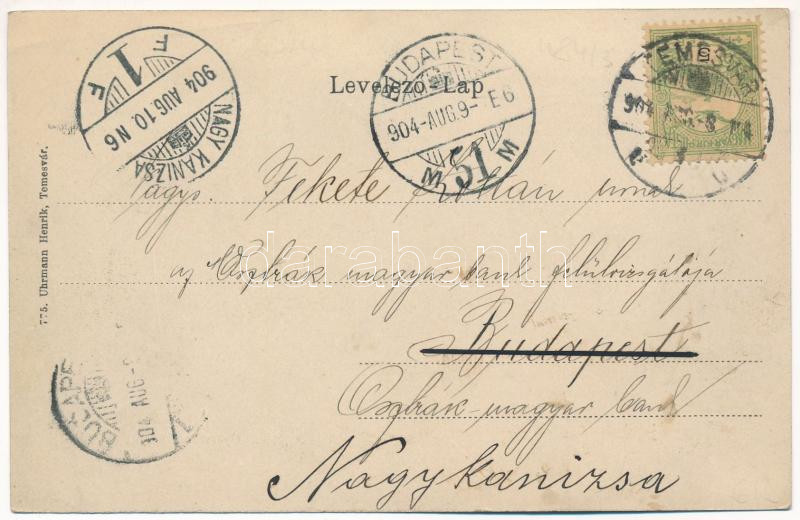 F 1 F
904 AUG.10. N6
NAGY KANIZSA
BUDAPEST
904-AUG.9- E6
M 51 M
TEMESVÁR
Levelező-Lap
775. Uhrmann Henrik, Temesvár.
Nagys. Fekete Zoltán úrnak
az Osztrák magyar bank felülvizsgálója
Budapest
Osztrák-magyar bank
Nagykanizsa
BUDAPE
904 AUG
darabanth